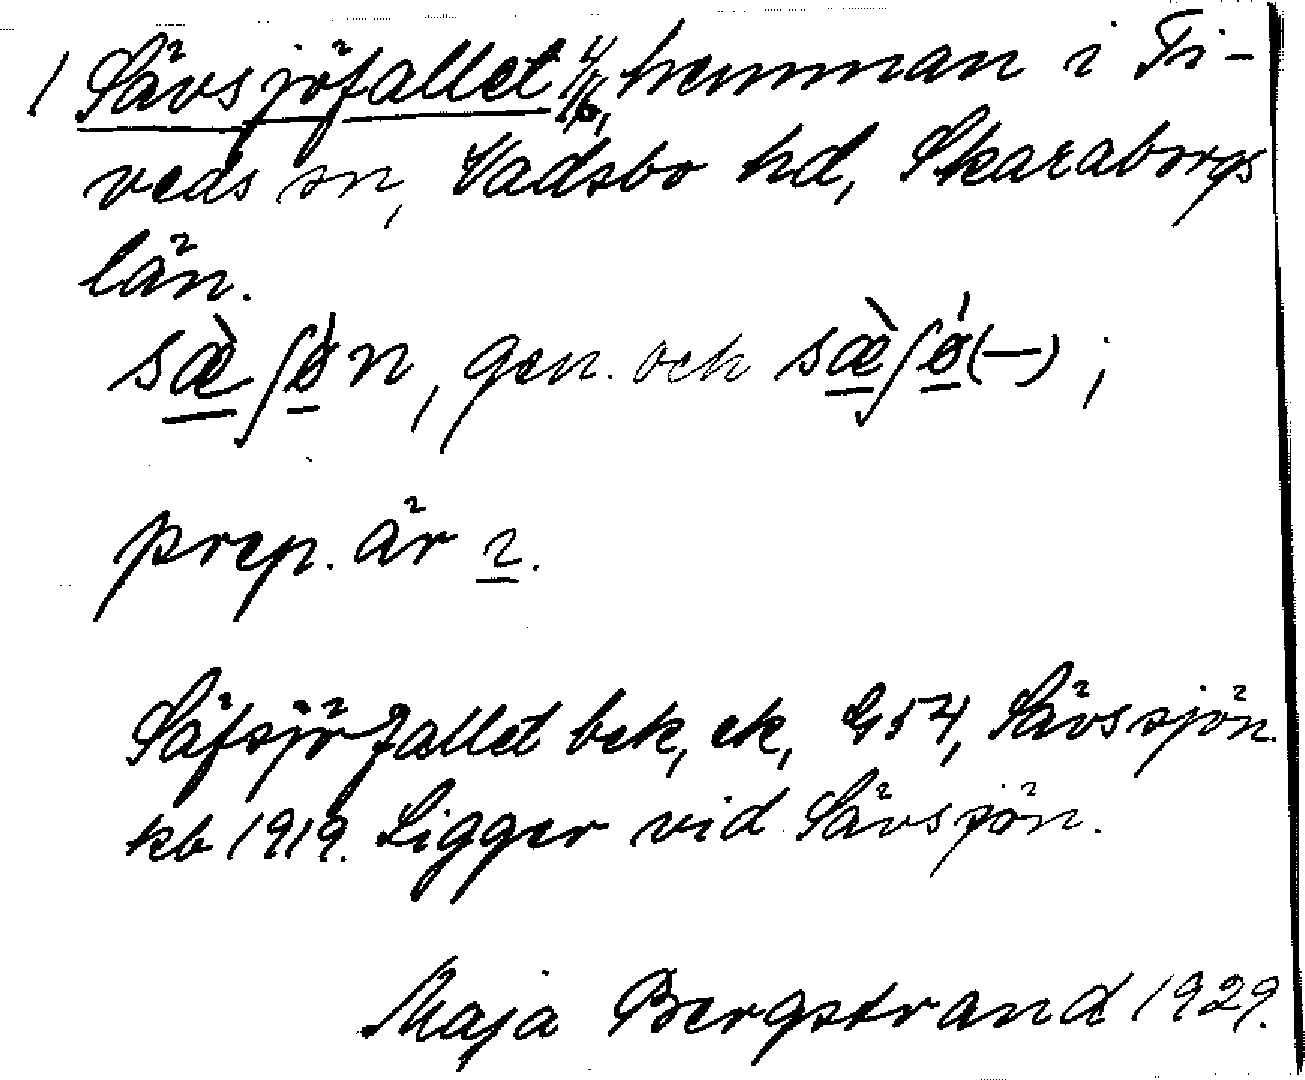 1 Sävsjöfallet 1/16, hemman i Ti-
veds sn, Vadsbo hd, Skaraborgs
län.
sæ̀ʃǿn, gen. och sæ̀ʃǿ(–);
prep. är 2.
Säfsjöfallet bek, ek, G54, Sävssjön
kb 1919. Ligger vid Sävsjön.
Maja Bergstrand 1929.